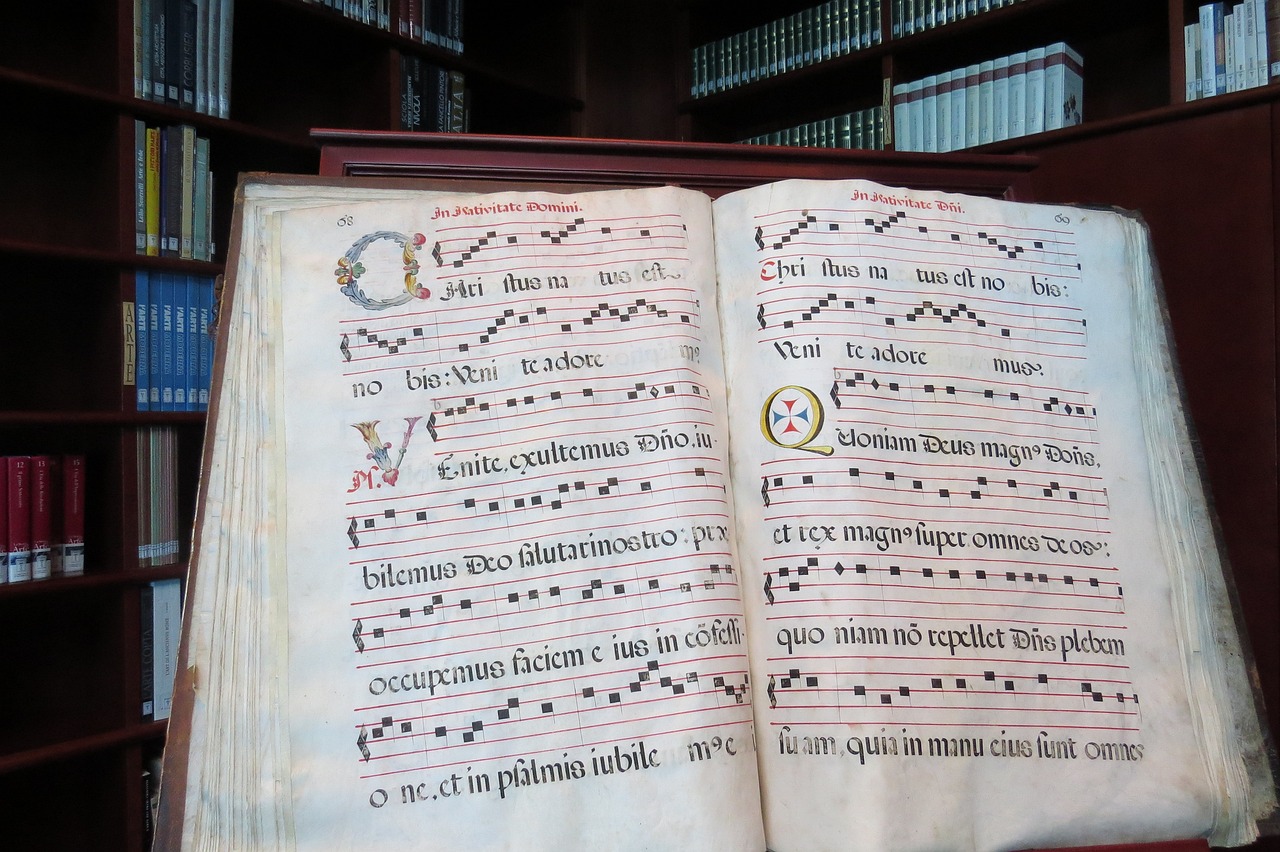 68
In Nativitate Domini.
CHri stus na tus est
no bis: Veni te adore m9
Ps. VEnite, exultemus Dño. iu-
bilemus Deo salutarinostro: prę
occupemus faciem e ius in cõfessi-
o ne, et in psalmis iubile m9 e
In Nativitate Dñi.
Chri stus na tus est no bis:
Veni te adore mus.
Quoniam Deus magn9 Dons,
et rex magn9 super omnes deos:
quo niam nõ repellet Dñs plebem
su am, quia in manu eius sunt omnes
ARTE
L'ARTE
L'ARTE
L'ARTE
L'ARTE
L'ARTE